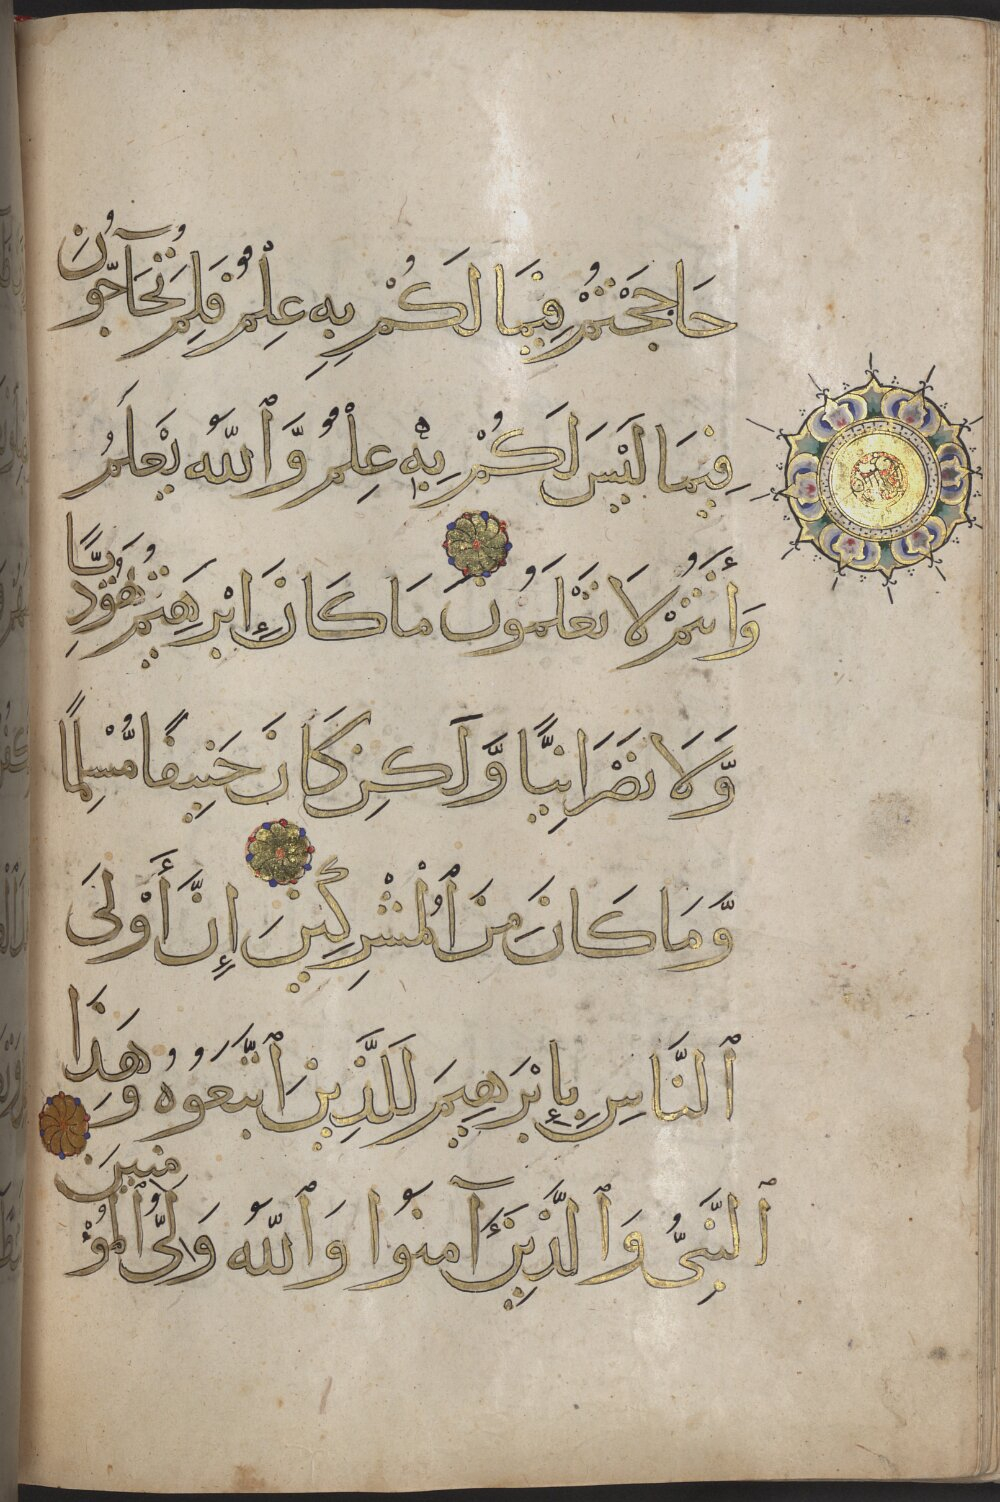 حَاجَجْتُمْ فِيمَا لَكُمْ بِهِ عِلْمٌ فَلِمَ تُحَآجُّونَ
فِيمَا لَيْسَ لَكُمْ بِهِ عِلْمٌ وَّٱللَّهُ يَعْلَمُ
وَأَنتُمْ لَا تَعْلَمُونَ مَا كَانَ إِبْرَهِيمُ يَهُودِيًّا
وَّلَا نَصْرَانِيًّا وَّلَكِن كَانَ حَنِيفًا مُّسْلِمًا
وَّمَا كَانَ مِنَ ٱلْمُشْرِكِينَ إِنَّ أَوْلَى
ٱلنَّاسِ بِإِبْرَهِيمَ لَلَّذِينَ ٱتَّبَعُوهُ وَهَذَا
ٱلنَّبِيُّ وَٱلَّذِينَ آمَنُوا وَٱللَّهُ وَلِيُّ ٱلْمُؤْمِنِينَ